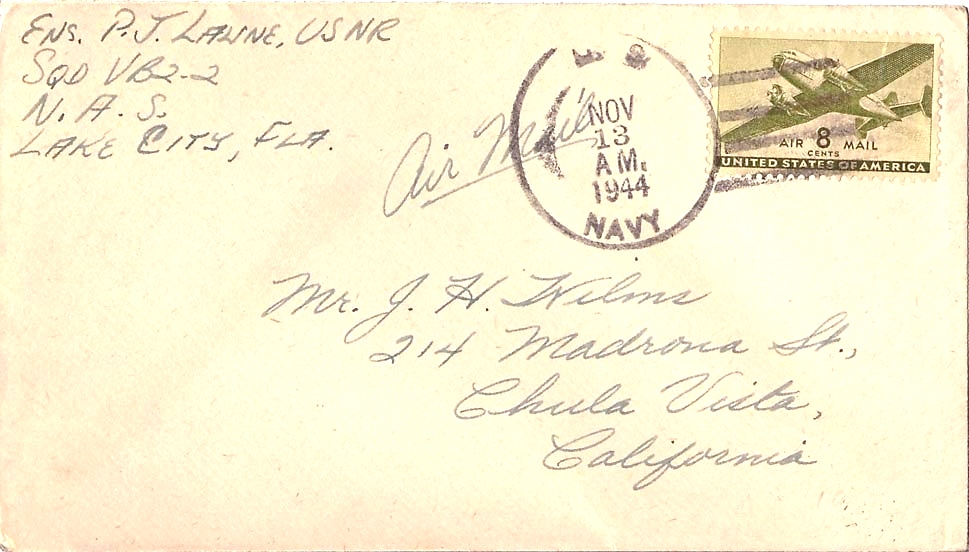 ENS. P.J. LAWNE, USNR
SQD VB2-2
N.A.S.
LAKE CITY, FLA.
Air Mail
NOV
13
AM.
1944
NAVY
AIR 8 MAIL
CENTS
UNITED STATES OF AMERICA
Mr. J. H. Wilms
214 Madrona St.,
Chula Vista,
California